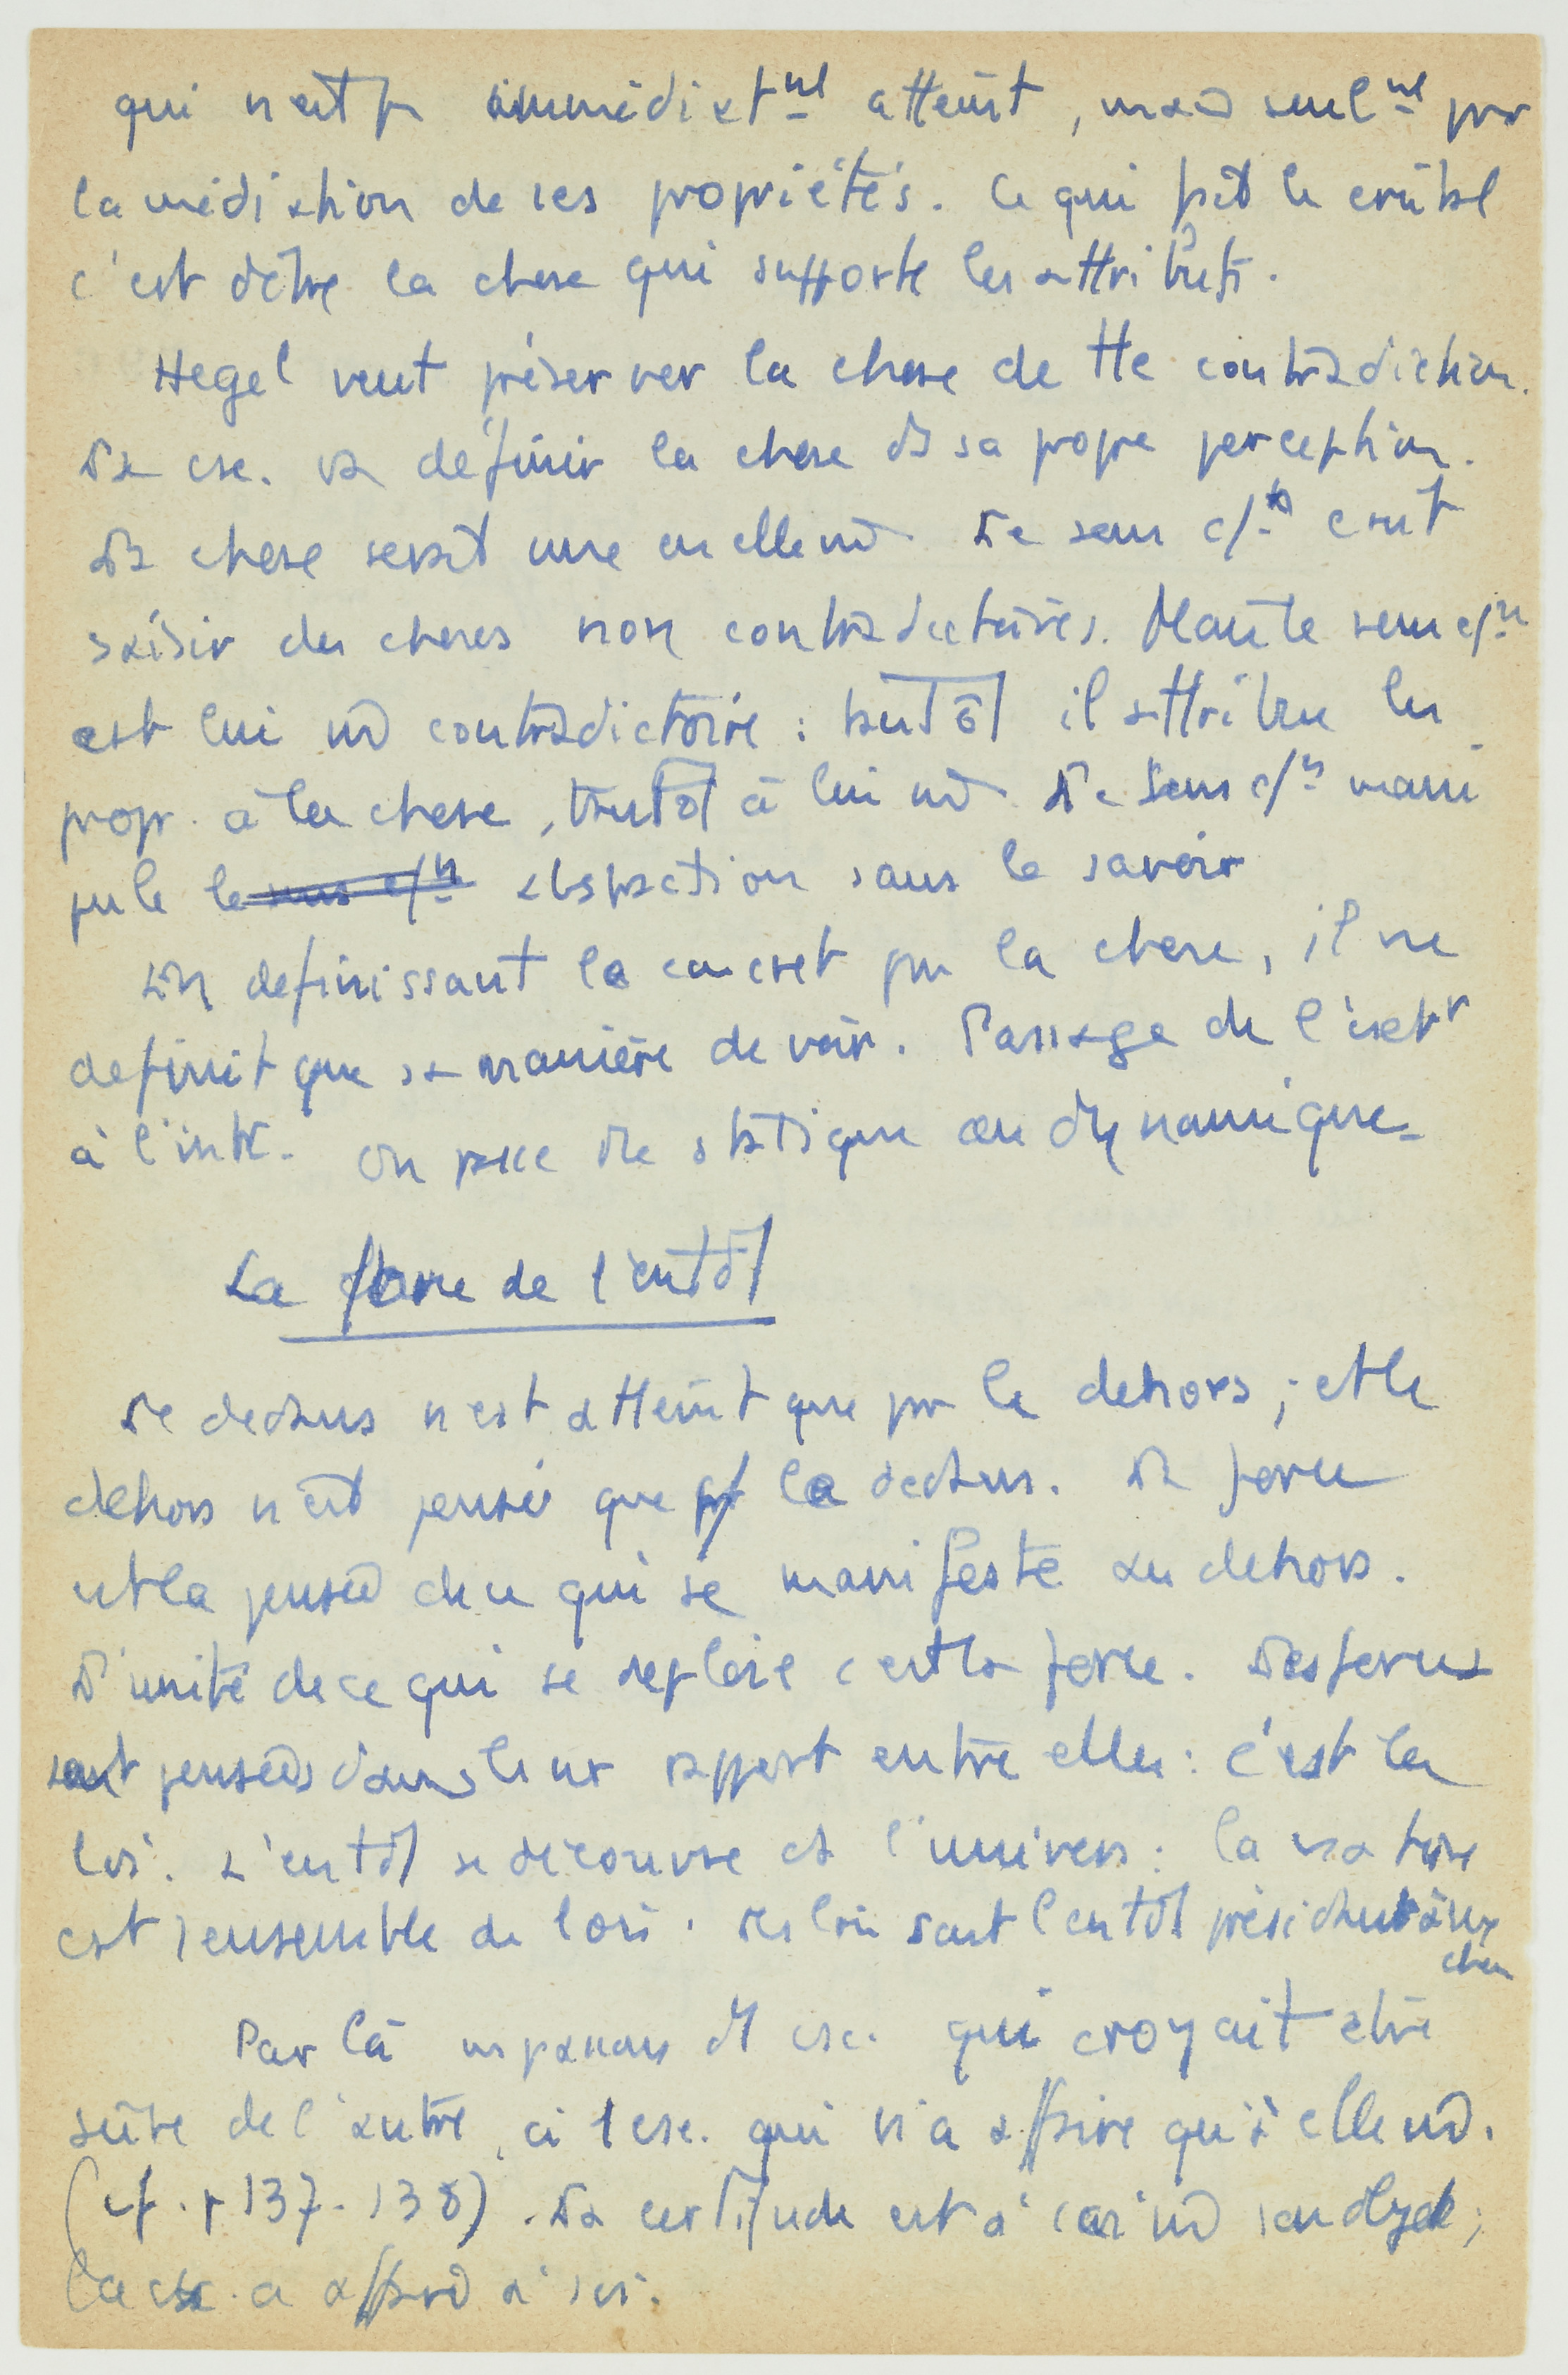 qui n'est p. immédiat^nt atteint, mais seul^nt par
la médiation de ses propriétés. Ce qui fait le cristal
c'est d'être la chose qui supporte les attributs.
Hegel veut préserver la chose de tte contradiction.
La csc. va définir la chose ds sa propre perception.
La chose serait une en elle mê. Le sens c/^n croit
saisir des choses non contradictoires. Mais le sens c/^n
est lui mê contradictoire : tantôt il attribue les
propr. à la chose, tantôt à lui mê. Le sens c/^n mani
pule le sens c/^n abstraction sans le savoir
En définissant le concret par la chose, il ne
définit que sa manière de voir. Passage de l'extr
à l'intr. On passe du statique au dynamique.
La force de l'entdt
Le dedans n'est atteint que par le dehors ; et le
dehors n'est pensé que par le dedans. La force
est la pensée de ce qui se manifeste au dehors.
L'unité de ce qui se déploie c'est la force. Les forces
sont pensées dans leur rapport entre elles : c'est la
loi. L'entdt se découvre ds l'univers : la nature
est l'ensemble de lois. Les lois sont l'entdt présidant aux
choses
Par là ns passons d'1 csc. qui croyait être
sûre de l'autre, à 1 csc. qui n'a affaire qu'à elle mê.
(cf. p 137-138). La certitude est à soi mê son objet ;
la csc. a affaire à soi.